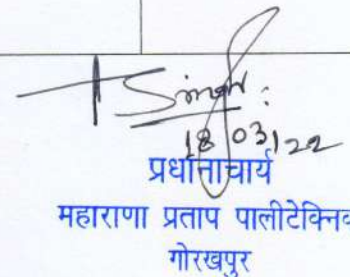 TSingh:
18/03/22
प्रधानाचार्य
महाराणा प्रताप पालीटेक्निक
गोरखपुर